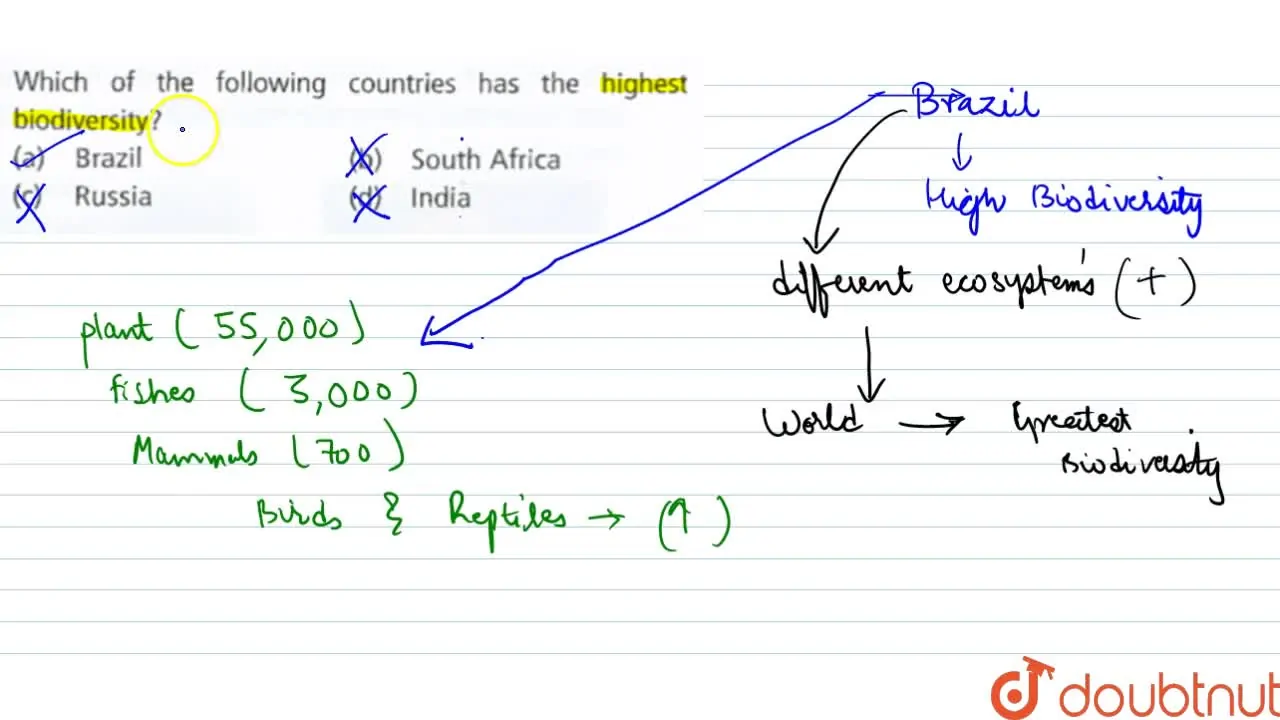 Which of the following countries has the highest
biodiversity?
(a) Brazil (b) South Africa
(c) Russia (d) India
Brazil
High Biodiversity
different ecosystem's (+)
World → Greatest
Biodiversity
plant (55,000)
fishes (3,000)
Mammals (700)
Birds & Reptiles → (↑)
doubtnut